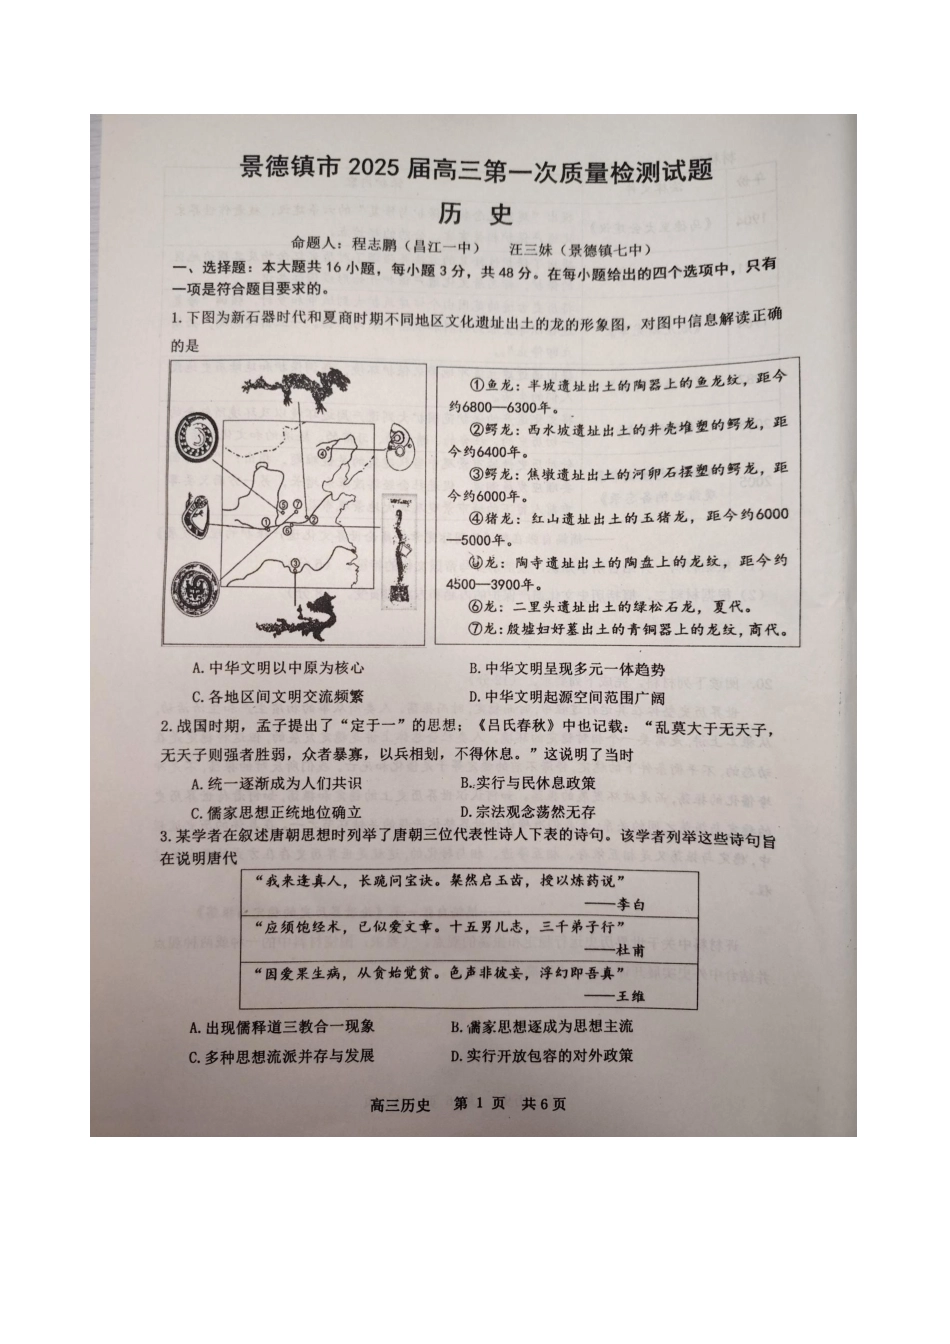 景德镇市 2025 届高三第一次质量检测试题
历 史
命题人：程志鹏（昌江一中） 汪三妹（景德镇七中）
一、选择题：本大题共 16 小题，每小题 3 分，共 48 分。在每小题给出的四个选项中，只有
一项是符合题目要求的。
1.下图为新石器时代和夏商时期不同地区文化遗址出土的龙的形象图，对图中信息解读正确
的是
①鱼龙：半坡遗址出土的陶器上的鱼龙纹，距今
约6800—6300年。
②鳄龙：西水坡遗址出土的蚌壳堆塑的鳄龙，距
今约6400年。
③鳄龙：焦墩遗址出土的河卵石摆塑的鳄龙，距
今约6000年。
④猪龙：红山遗址出土的玉猪龙，距今约6000
—5000年。
⑤龙：陶寺遗址出土的陶盘上的龙纹，距今约
4500—3900年。
⑥龙：二里头遗址出土的绿松石龙，夏代。
⑦龙:殷墟妇好墓出土的青铜器上的龙纹,商代。
④
⑤ ⑦
① ⑥ ②
③
A.中华文明以中原为核心 B.中华文明呈现多元一体趋势
C.各地区间文明交流频繁 D.中华文明起源空间范围广阔
2.战国时期，孟子提出了“定于一”的思想；《吕氏春秋》中也记载：“乱莫大于无天子，
无天子则强者胜弱，众者暴寡，以兵相刬，不得休息。”这说明了当时
A.统一逐渐成为人们共识 B.实行与民休息政策
C.儒家思想正统地位确立 D.宗法观念荡然无存
3.某学者在叙述唐朝思想时列举了唐朝三位代表性诗人下表的诗句。该学者列举这些诗句旨
在说明唐代
“我来逢真人，长跪问宝诀。粲然启玉齿，授以炼药说”
——李白
“应须饱经术，已似爱文章。十五男儿志，三千弟子行”
——杜甫
“因爱果生病，从贪始觉贫。色声非彼妄，浮幻即吾真”
——王维
A.出现儒释道三教合一现象 B.儒家思想逐成为思想主流
C.多种思想流派并存与发展 D.实行开放包容的对外政策
高三历史 第 1 页 共 6 页